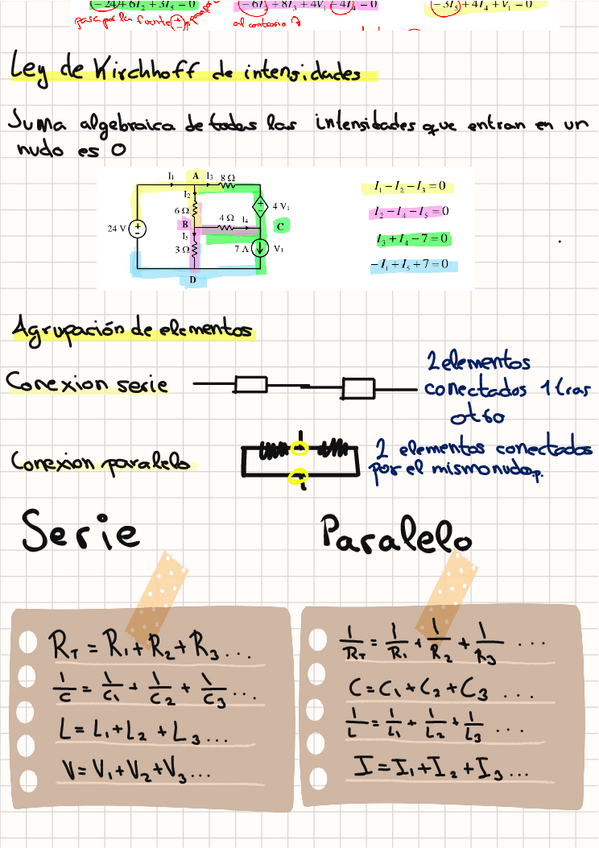 -24+6I₂+3I₅=0
-6I₂+8I₃+4V₁-4I₄=0
-3I₅+4I₄+V₁=0
pasa por la fuente (-)
al contrario
Ley de Kirchhoff de intensidades
Suma algebraica de todas las intensidades que entran en un
nudo es 0
I₁ A I₃ 8 Ω
I₂
6 Ω
4 V₁
4 Ω I₄
B
C
24 V
I₅
3 Ω
7 A
V₁
D
I₁-I₂-I₃=0
I₂-I₄-I₅=0
I₃+I₄-7=0
-I₁+I₅+7=0
Agrupación de elementos
Conexion serie
2 elementos
conectados 1 tras
otro
Conexion paralelo
2 elementos conectados
por el mismo nudo
Serie
Paralelo
R_T = R₁+R₂+R₃...
1/C = 1/C₁ + 1/C₂ + 1/C₃...
L = L₁+L₂+L₃...
V = V₁+V₂+V₃...
1/R_T = 1/R₁ + 1/R₂ + 1/R₃ ...
C = C₁+C₂+C₃ ...
1/L = 1/L₁ + 1/L₂ + 1/L₃ ...
I = I₁+I₂+I₃...